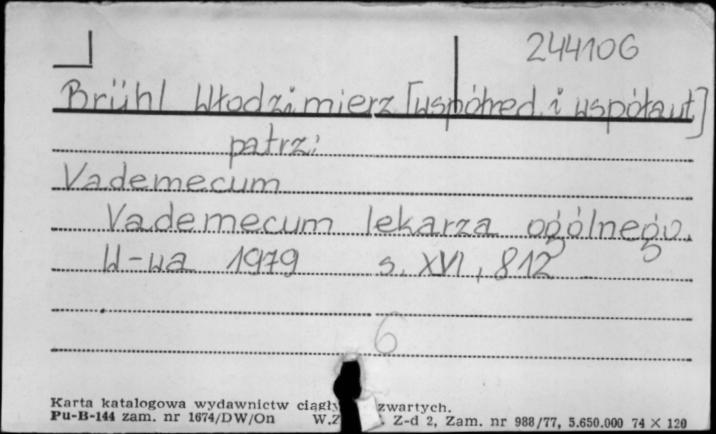 244106
Brühl Włodzimierz [współred. i współaut]
patrz:
Vademecum
Vademecum lekarza ogólnego.
W-wa 1979 s. XVI, 812
6
Karta katalogowa wydawnictw ciągły zwartych.
Pu-B-144 zam. nr 1674/DW/On W.Z Z-d 2, Zam. nr 988/77, 5.650.000 74 × 120